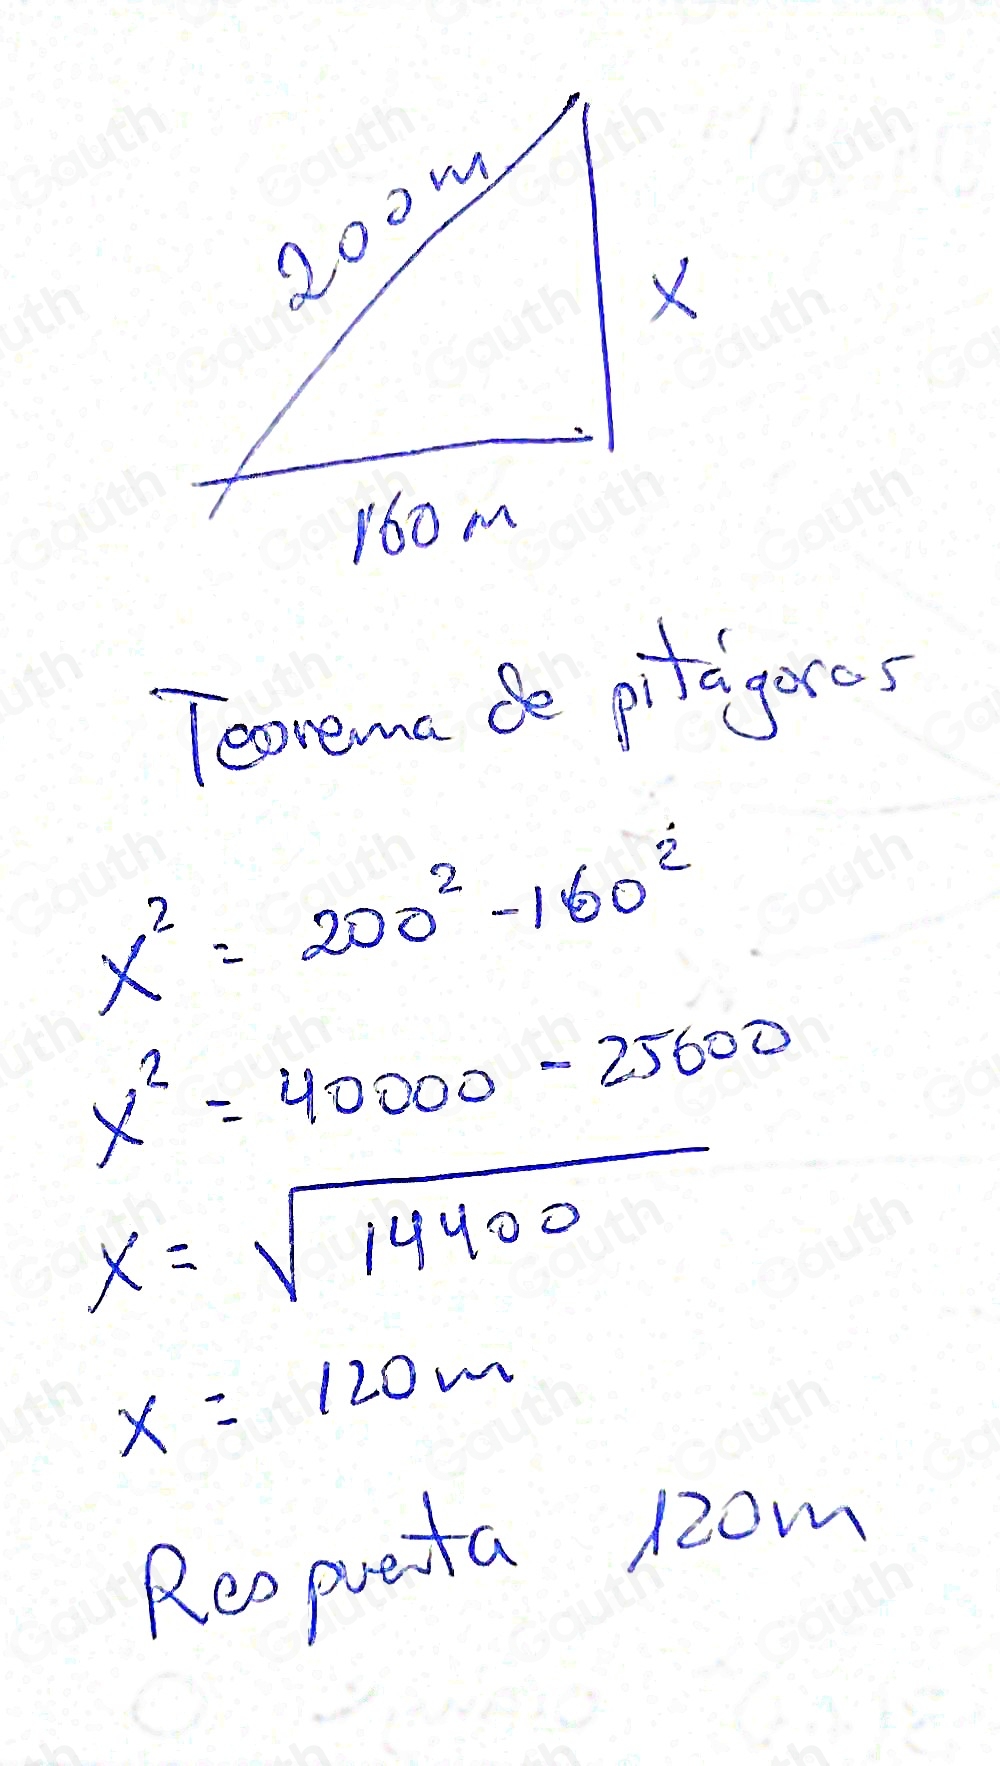 200m
x
160 m
Teorema de pitágoras
x² = 200² - 160²
x² = 40000 - 25600
x = √14400
x = 120m
Respuesta 120m